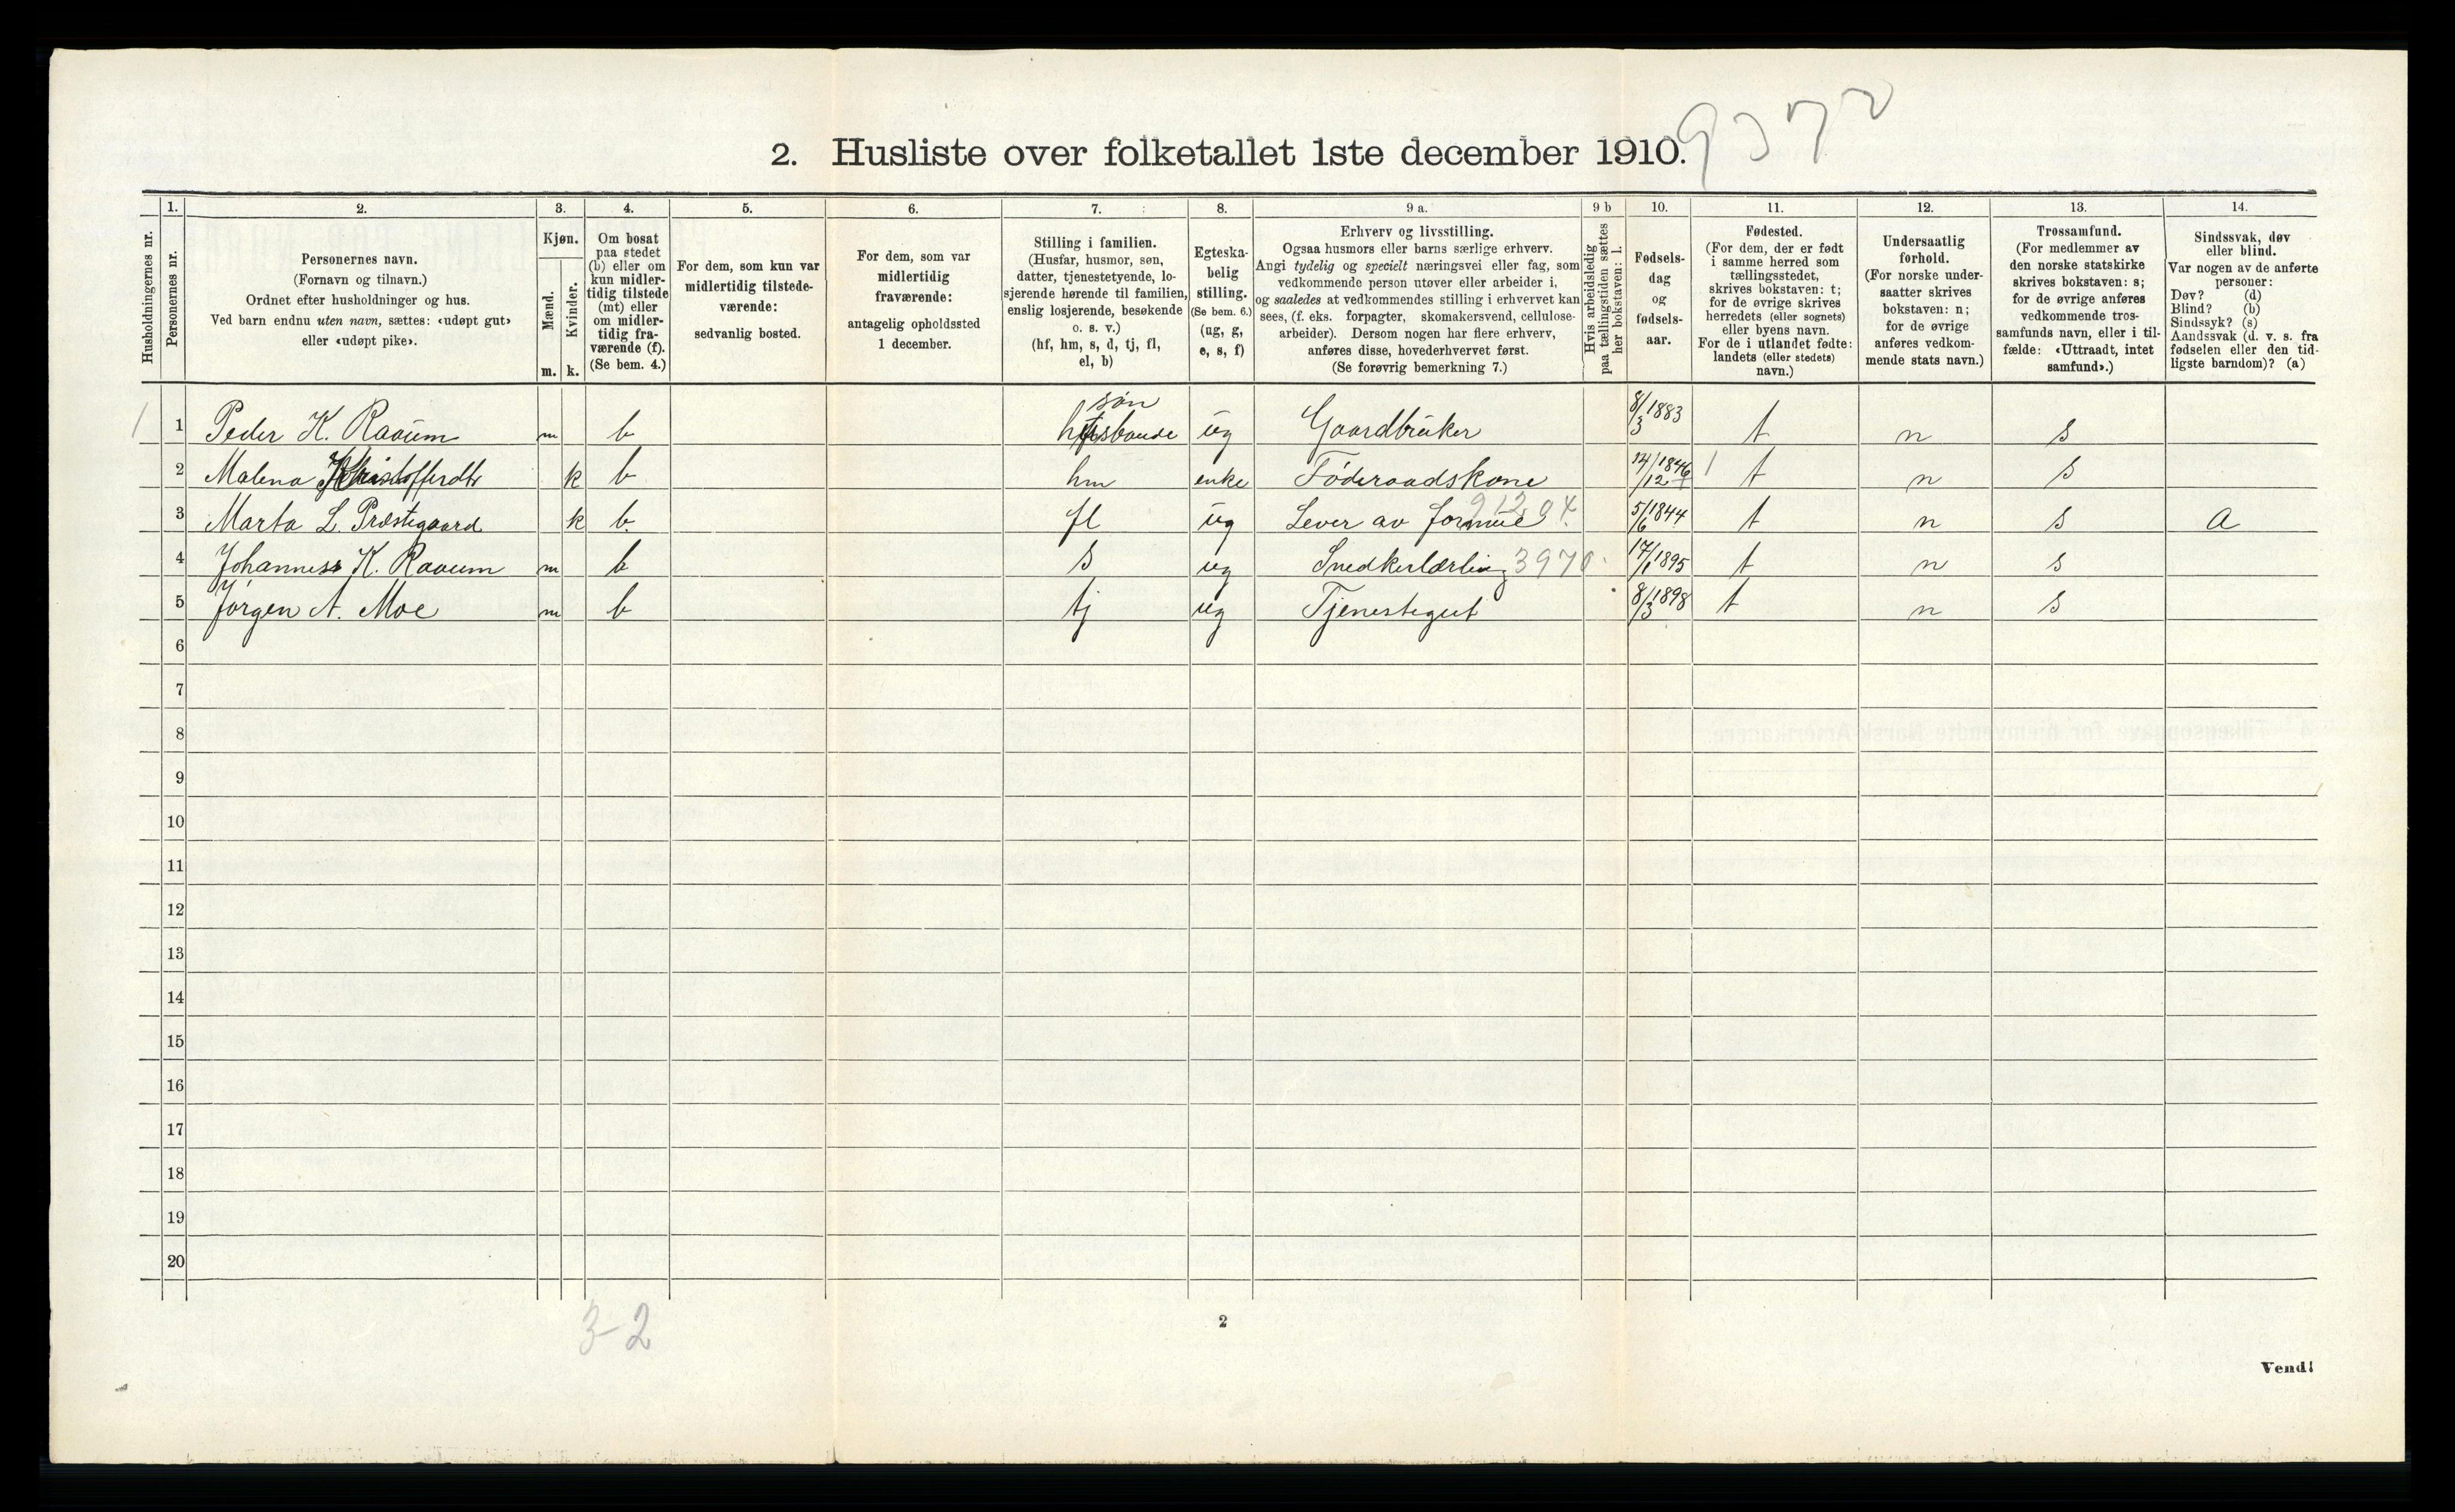 9372
2. Husliste over folketallet 1ste december 1910.
1. 2. 3. 4. 5. 6. 7. 8. 9 a. 9 b 10. 11. 12. 13. 14.
Husholdningernes nr.
Personernes nr.
Personernes navn.
(Fornavn og tilnavn.)
Ordnet efter husholdninger og hus.
Ved barn endnu uten navn, sættes: «udøpt gut»
eller «udøpt pike».
Kjøn.
Mænd.
Kvinder.
m. k.
Om bosat
paa stedet
(b) eller om
kun midler-
tidig tilstede
(mt) eller
om midler-
tidig fra-
værende (f).
(Se bem. 4.)
For dem, som kun var
midlertidig tilstede-
værende:
sedvanlig bosted.
For dem, som var
midlertidig
fraværende:
antagelig opholdssted
1 december.
Stilling i familien.
(Husfar, husmor, søn,
datter, tjenestetyende, lo-
sjerende hørende til familien,
enslig losjerende, besøkende
o. s. v.)
(hf, hm, s, d, tj, fl,
el, b)
Egteska-
belig
stilling.
(Se bem. 6.)
(ug, g,
e, s, f)
Erhverv og livsstilling.
Ogsaa husmors eller barns særlige erhverv.
Angi tydelig og specielt næringsvei eller fag, som
vedkommende person utøver eller arbeider i,
og saaledes at vedkommendes stilling i erhvervet kan
sees, (f. eks. forpagter, skomakersvend, cellulose-
arbeider). Dersom nogen har flere erhverv,
anføres disse, hovederhvervet først.
(Se forøvrig bemerkning 7.)
Hvis arbeidsledig
paa tællingstiden sættes
her bokstaven: l.
Fødsels-
dag
og
fødsels-
aar.
Fødested.
(For dem, der er født
i samme herred som
tællingsstedet,
skrives bokstaven: t;
for de øvrige skrives
herredets (eller sognets)
eller byens navn.
For de i utlandet fødte:
landets (eller stedets)
navn.)
Undersaatlig
forhold.
(For norske under-
saatter skrives
bokstaven: n;
for de øvrige
anføres vedkom-
mende stats navn.)
Trossamfund.
(For medlemmer av
den norske statskirke
skrives bokstaven: s;
for de øvrige anføres
vedkommende tros-
samfunds navn, eller i til-
fælde: «Uttraadt, intet
samfund».)
Sindssvak, døv
eller blind.
Var nogen av de anførte
personer:
Døv? (d)
Blind? (b)
Sindssyk? (s)
Aandssvak (d. v. s. fra
fødselen eller den tid-
ligste barndom)? (a)
søn
1 1 Peder K. Raaum m b ug Gaardbruker 8/3 1883 t n s
2 Malena Kristofferdtr k b hm enke Føderaadskone 14/12 1846 t n s
3 Marta L. Præstegaard k b. fl ug Lever av formue 5/6 1844 t n s a
4 Johannes K. Raaum m b s ug Snedkerlærling 3970 17/1 1895 t n s
5 Jørgen A. Moe m b tj ug Tjenestegut 8/3 1898 t n s
6
7
8
9
10
11
12
13
14
15
16
17
18
19
20
3-2
2
Vend!